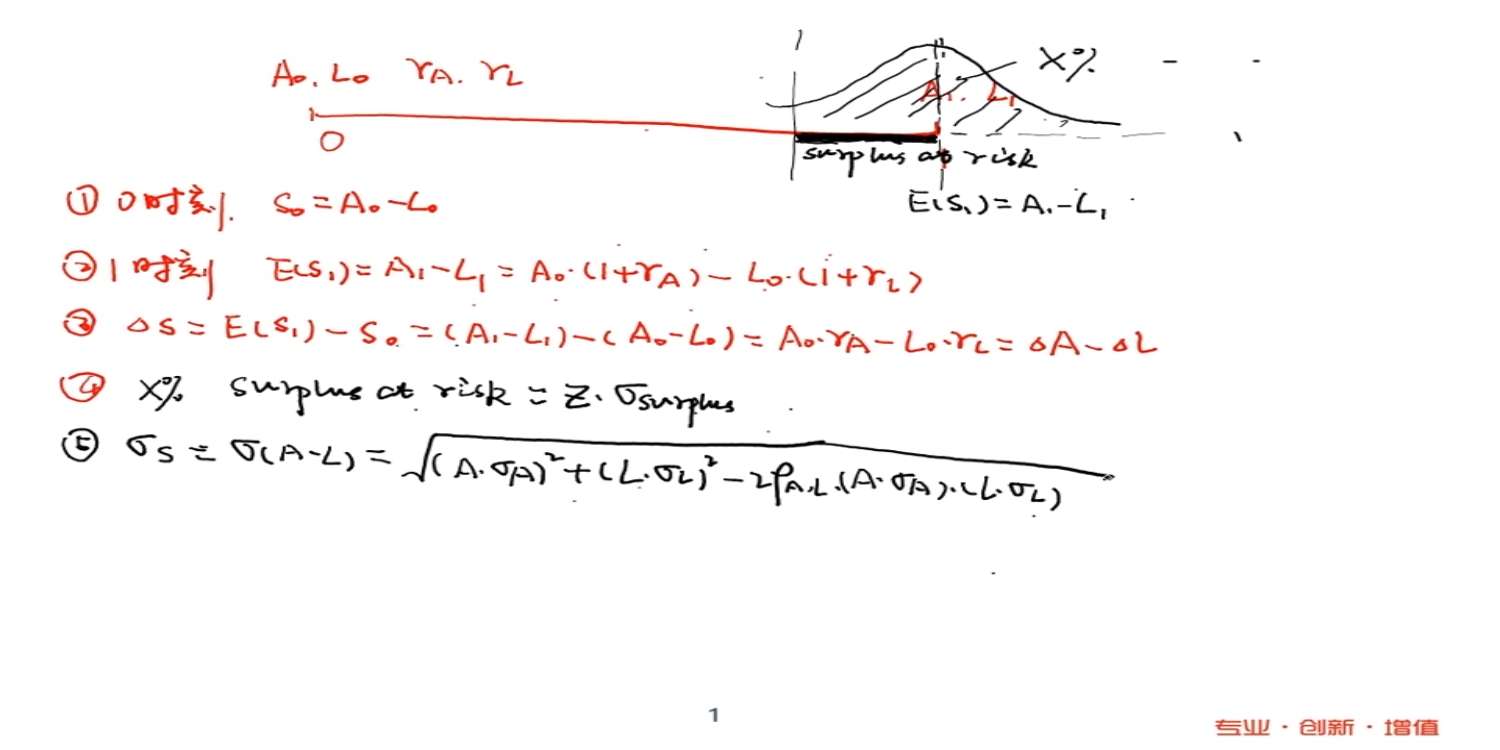 A₀. L₀ r_A. r_L
X%
A₁. L₁
0
surplus at risk
E(S₁) = A₁ - L₁
① 0时刻. S₀ = A₀ - L₀
② 1时刻 E(S₁) = A₁ - L₁ = A₀·(1+r_A) - L₀·(1+r_L)
③ △S = E(S₁) - S₀ = (A₁-L₁) - (A₀-L₀) = A₀·r_A - L₀·r_L = △A - △L
④ X% surplus at risk = Z·σ_surplus
⑤ σ_S = σ(A-L) = √((A·σ_A)² + (L·σ_L)² - 2ρ_A,L·(A·σ_A)·(L·σ_L))
1
专业·创新·增值